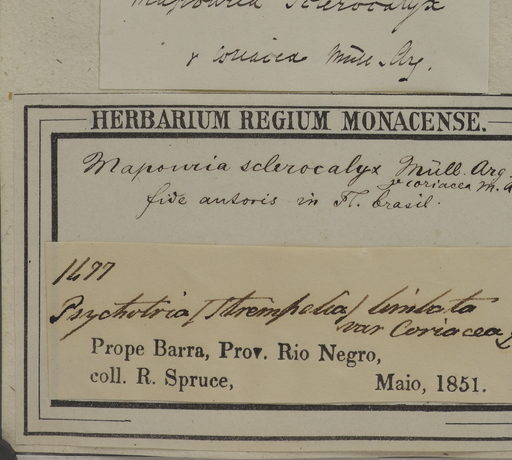 Mapouria sclerocalyx
γ coriacea Müll. Arg.
HERBARIUM REGIUM MONACENSE.
Mapouria sclerocalyx Müll. Arg.
γ coriacea M. A
fide autoris in Fl. brasil.
1477
Psychotria (Strempelia) limbata
var Coriacea
Prope Barra, Prov. Rio Negro,
coll. R. Spruce, Maio, 1851.